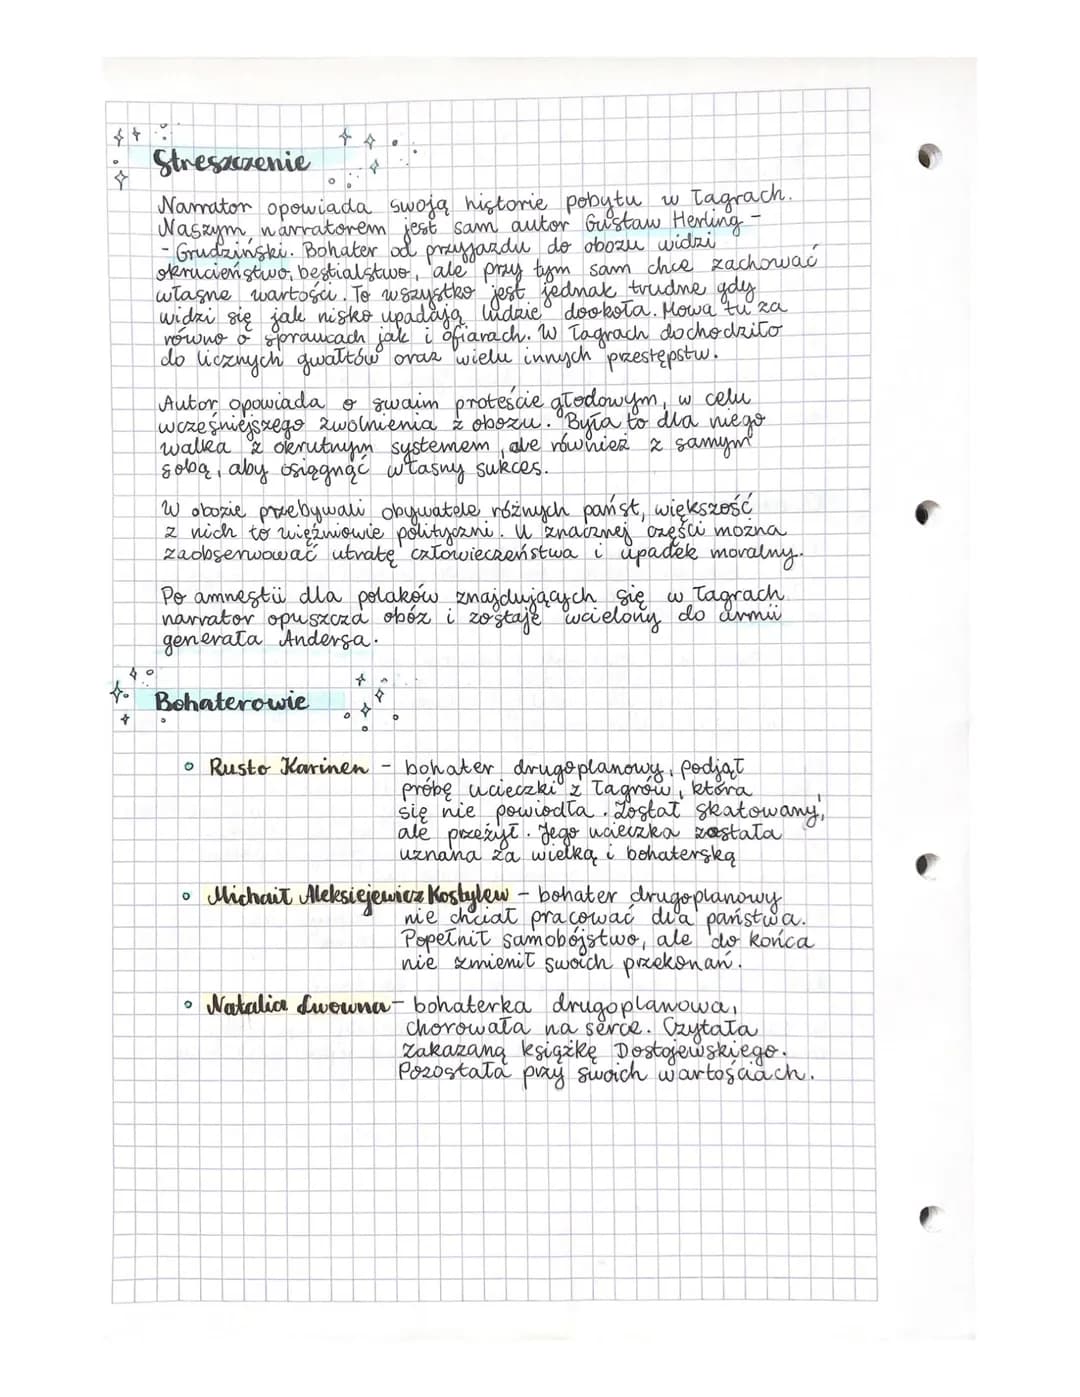 Streszczenie
Narrator opowiada swoją historie pobytu w Łagrach.
Naszym narratorem jest sam autor Gustaw Herling -
- Grudziński. Bohater od przyjazdu do obozu widzi
okrucieństwo, bestialstwo, ale przy tym sam chce zachować
własne wartości. To wszystko jest jednak trudne gdy
widzi się jak nisko upadają ludzie dookoła. Mowa tu za
równo o sprawcach jak i ofiarach. W Łagrach dochodziło
do licznych gwałtów oraz wielu innych przestępstw.
Autor opowiada o swoim proteście głodowym, w celu
wcześniejszego zwolnienia z obozu. Była to dla niego
walka z okrutnym systemem, ale również z samym
sobą, aby osiągnąć własny sukces.
W obozie przebywali obywatele różnych państ, większość
z nich to więźniowie polityczni. U znacznej części można
zaobserwować utratę człowieczeństwa i upadek moralny.
Po amnestii dla polaków znajdujących się w Łagrach
narrator opuszcza obóz i zostaje wcielony do armii
generała Andersa.
Bohaterowie
Rusto Karinen - bohater drugoplanowy, podjął
próbę ucieczki z Łagrów, która
się nie powiodła. Został skatowany,
ale przeżył. Jego ucieczka została
uznana za wielką i bohaterską
Michaił Aleksiejewicz Kostylew - bohater drugoplanowy
nie chciał pracować dla państwa.
Popełnił samobójstwo, ale do końca
nie zmienił swoich przekonań.
Natalia Lwowna - bohaterka drugoplanowa,
chorowała na serce. Czytała
zakazaną książkę Dostojewskiego.
Pozostała przy swoich wartościach.